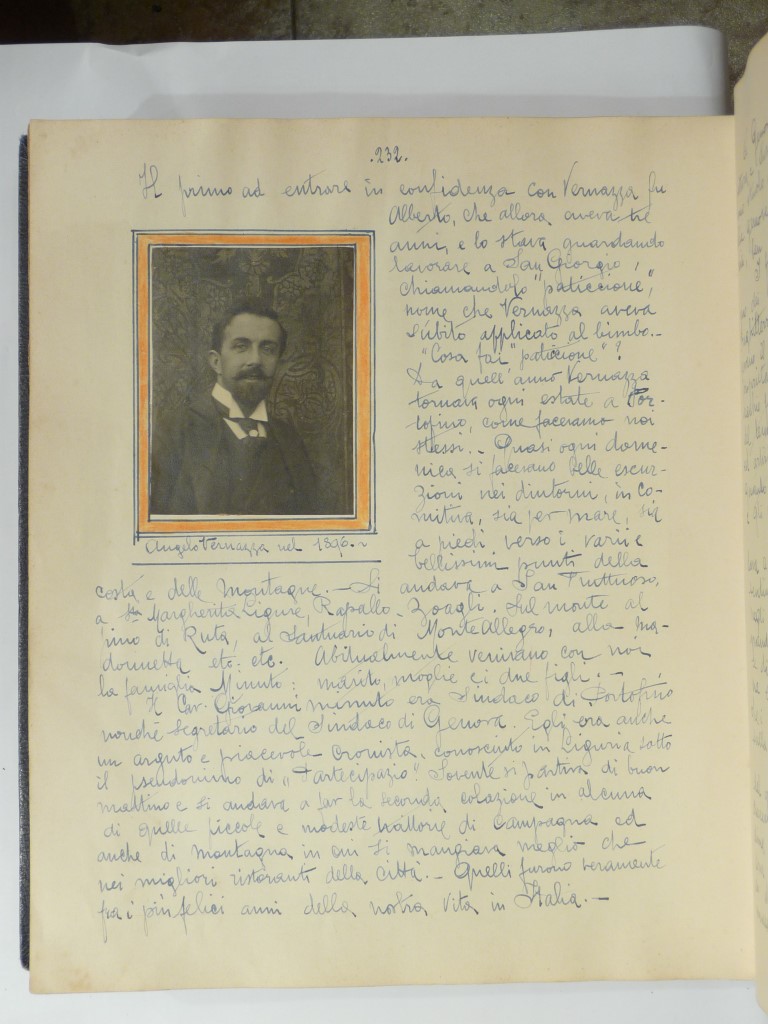 .232.
Il primo ad entrare in confidenza con Vernazza fu
Alberto, che allora aveva tre
anni, e lo stava guardando
lavorare a San Giorgio,
chiamandolo "paticcione",
nome che Vernazza aveva
subito applicato al bimbo.-
"Cosa fai "paticcione"?
Da quell'anno Vernazza
tornava ogni estate a Por-
tofino, come facevamo noi
stessi.. Quasi ogni dome-
nica si facevano belle escur-
zioni nei dintorni, in co-
mitiva, sia per mare, sia
a piedi, verso i varii e
bellissimi punti della
Angelo Vernazza nel 1896.~
costa e delle montagne.- Si andava a San Fruttuoso,
a Sta Margherita Ligure, Rapallo, Zoagli. Sul monte al
di Ruta, al Santuario di MonteAllegro, alla ma-
donnetta etc. etc. Abitualmente venivano con noi
la famiglia Minuto: marito, moglie e i due figli.-
Il Cav. Giovanni menuto era Sindaco di Portofino
nonché segretario del Sindaco di Genova. Egli era anche
un arguto e piacevole cronista, conosciuto in Liguria sotto
il pseudonimo di "Partecipazio". Sovente si partiva di buon
mattino e si andava a far la seconda colazione in alcuna
di quelle piccole e modeste trattorie di campagna ed
anche di montagna in cui si mangiava meglio che
nei migliori ristoranti della città.- Quelli furono veramente
fra i più felici anni della nostra vita in Italia.-